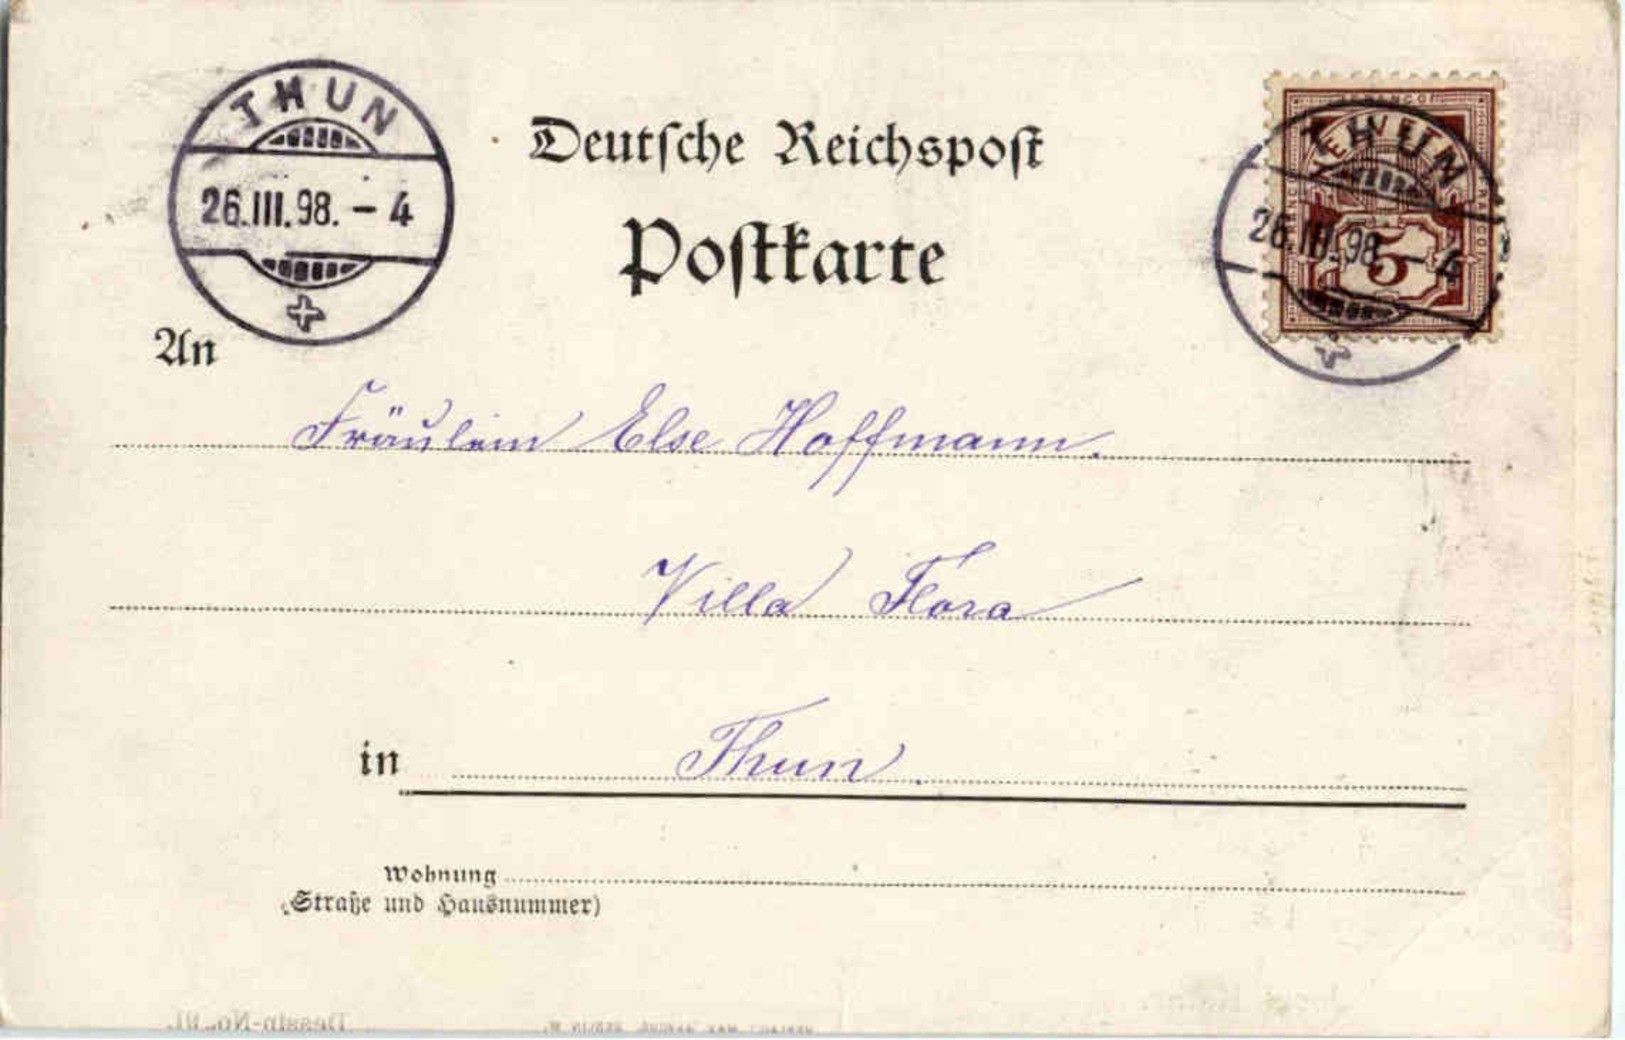 THUN
26.III.98. - 4
Deutsche Reichspost
Postkarte
FRANCO
HELVETIA
THUN
26.III.98. - 4
5
An
Fräulein Else Hoffmann.
Villa Flora
in Thun.
Wohnung
(Straße und Hausnummer)
Dessin-No. 91.